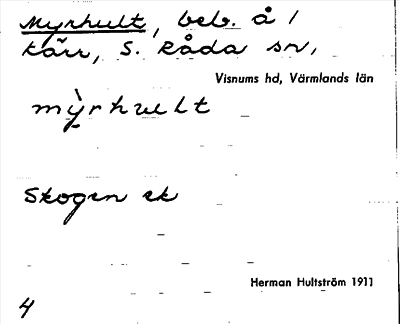 Myrhult, beb. å 1
kärr, S. Råda sn,
Visnums hd, Värmlands län
mỳrhult
Skogen ek
Herman Hultström 1911
4